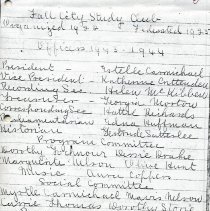 Fall City Study Club
Organized 1920 Federated 1935
Officers 1943-1944
President - Estelle Carmichael
Vice President - Katherine Crittenden
Recording Sec - Helen McKibben
Treasurer - Georgia Morton
Corresponding Sec - Hattie Richards
Parliamentarian - Edna Huffman
Historian - Gertrude Satterlee
Program Committee
Dorothy Bessie Drake
Marguerite Nelson Olive Hunt
Music - Aurre Coppers
Social Committee
Myrtle Carmichael Maurs Nelson
Carrie Thomas Dorothy Storie